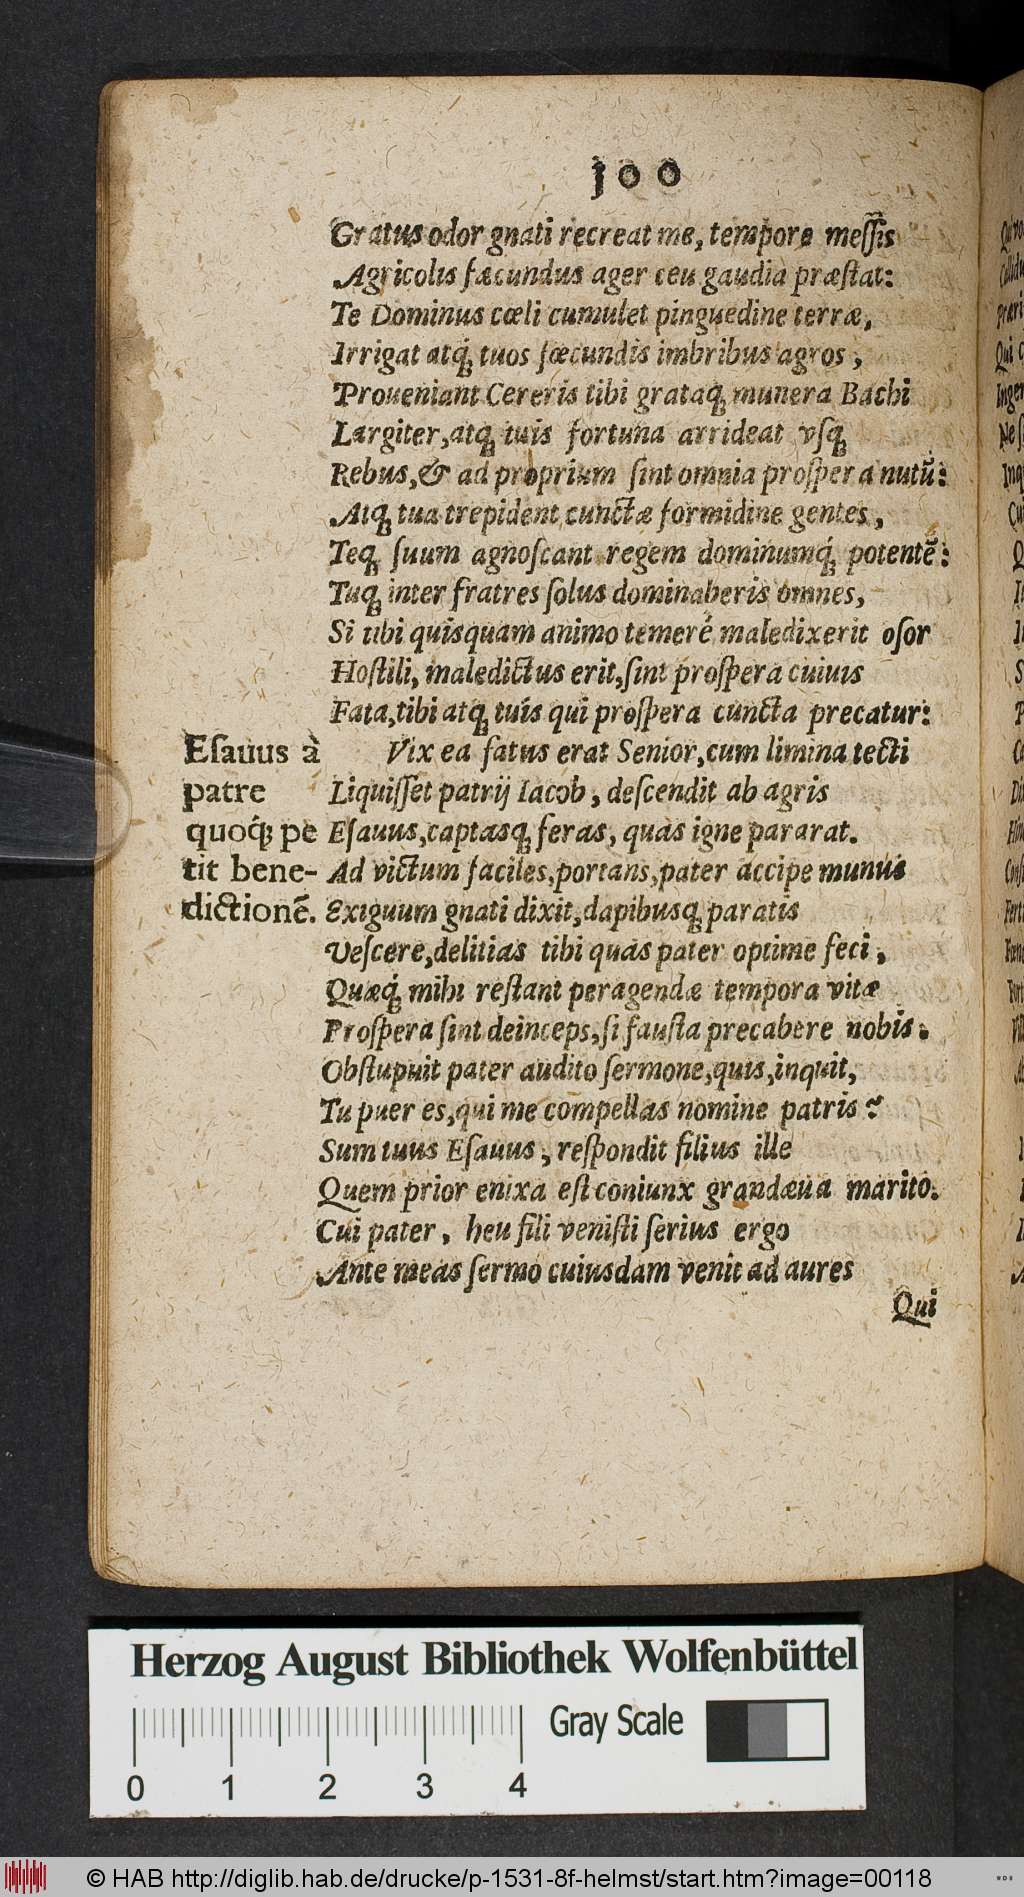 100
Gratus odor gnati recreat me, tempore meſſis
Agricolis fæcundus ager ceu gaudia præſtat:
Te Dominus cœli cumulet pinguedine terræ,
Irrigat atq́; tuos fœcundis imbribus agros,
Proueniant Cereris tibi grataq; munera Bachi
Largiter, atq; tuis fortuna arrideat vſq;
Rebus, & ad proprium ſint omnia proſpera nutũ:
Atq; tua trepident cunctæ formidine gentes,
Teq; ſuum agnoſcant regem dominumq́; potentẽ:
Tuq; inter fratres ſolus dominaberis omnes,
Si tibi quisquam animo temerè maledixerit oſor
Hoſtili, maledictus erit, ſint proſpera cuiuis
Fata, tibi atq; tuis qui proſpera cuncta precatur:
Eſauus à
patre
quoq́; pe
tit bene-
dictionẽ.
Vix ea fatus erat Senior, cum limina tecti
Liquiſſet patrij Iacob, deſcendit ab agris
Eſauus, captasq; feras, quas igne pararat.
Ad victum faciles, portans, pater accipe munus
Exiguum gnati dixit, dapibusq; paratis
Veſcere, delitias tibi quas pater optime feci,
Quæq́; mihi reſtant peragendæ tempora vitæ
Proſpera ſint deinceps, ſi fauſta precabere nobis.
Obſtupuit pater audito ſermone, quis, inquit,
Tu puer es, qui me compellas nomine patris?
Sum tuus Eſauus, reſpondit filius ille
Quem prior enixa eſt coniunx grandæua marito.
Cui pater, heu fili veniſti ſerius ergo
Ante meas ſermo cuiusdam venit ad aures
Qui
Herzog August Bibliothek Wolfenbüttel
Gray Scale
0 1 2 3 4
© HAB http://diglib.hab.de/drucke/p-1531-8f-helmst/start.htm?image=00118